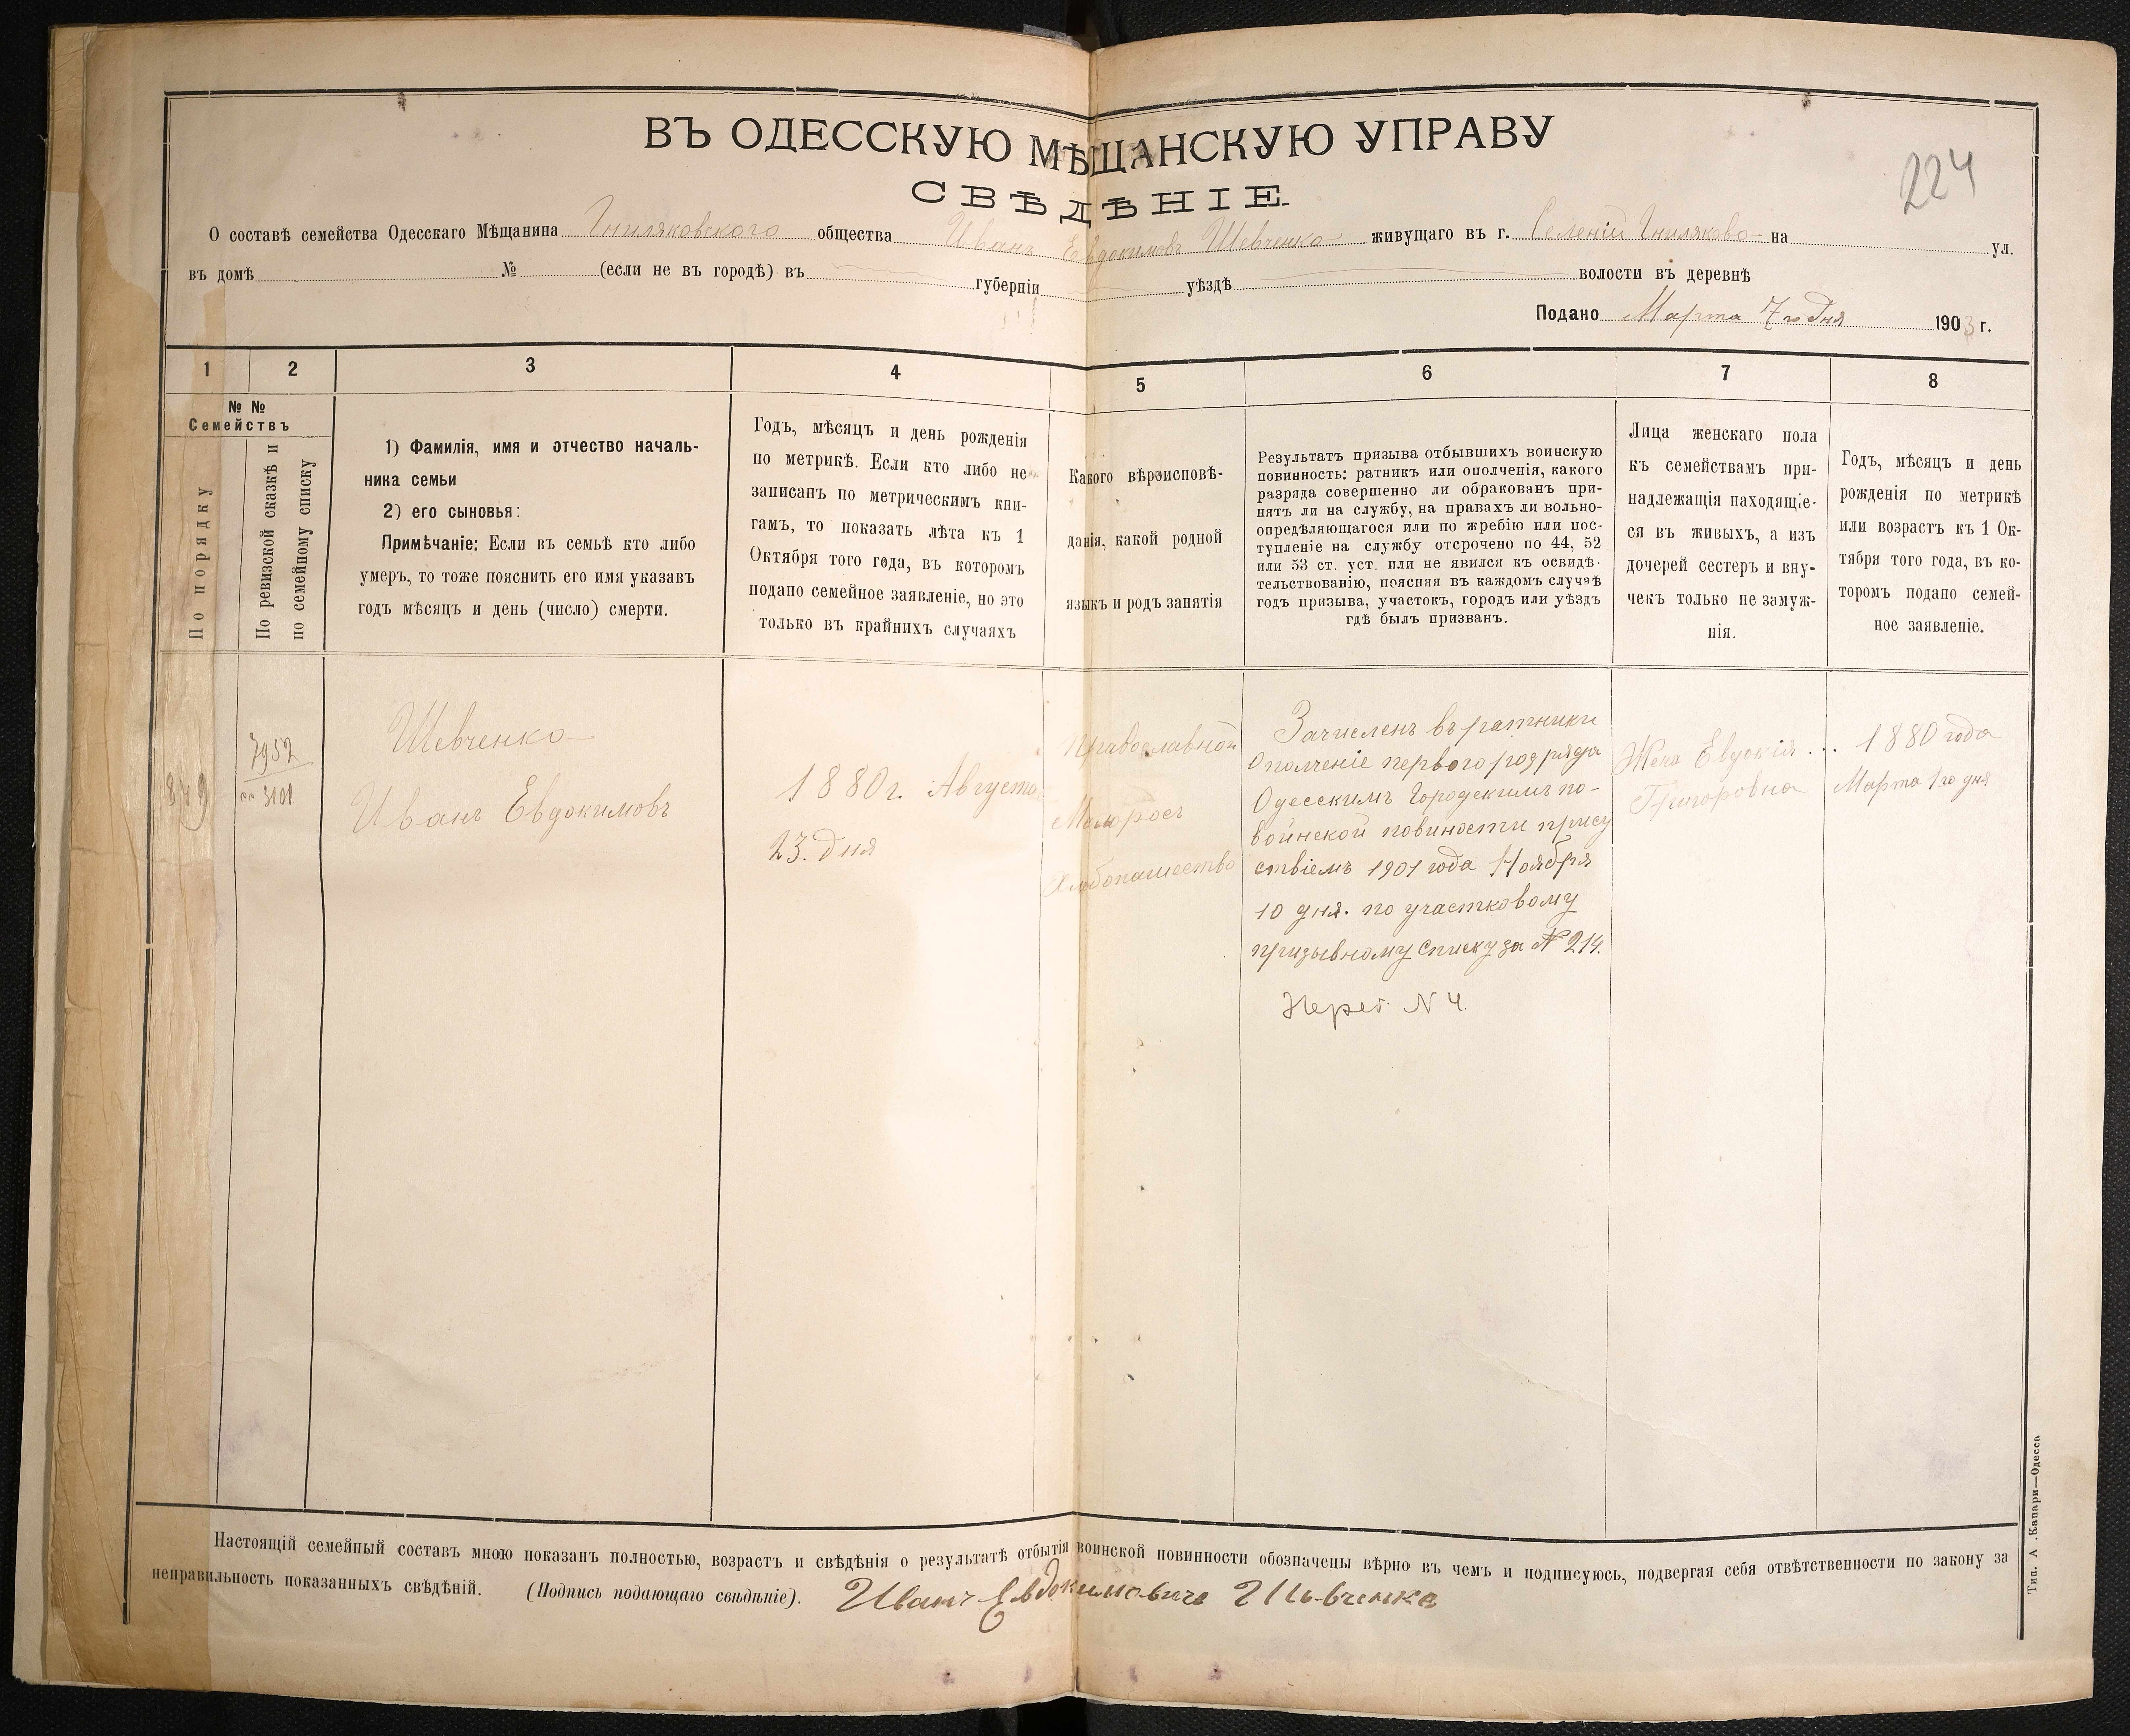 ВЪ ОДЕССКУЮ МѢЩАНСКУЮ УПРАВУ
224
СВѢДѢНІЕ.
О составѣ семейства Одесскаго Мѣщанина Гниляковского общества Иванъ Евдокимовъ Шевченко живущаго въ г. Селеніи Гниляково на ул.
въ домѣ № (если не въ городѣ) въ губерніи уѣздѣ волости въ деревнѣ
Подано Марта 7го дня 1903 г.
1 2 3 4 5 6 7 8
№ №
Семействъ
По порядку
По ревизской сказкѣ и
по семейному списку
1) Фамилія, имя и отчество началь-
ника семьи
2) его сыновья:
Примѣчаніе: Если въ семьѣ кто либо
умеръ, то тоже пояснить его имя указавъ
годъ мѣсяцъ и день (число) смерти.
Годъ, мѣсяцъ и день рожденія
по метрикѣ. Если кто либо не
записанъ по метрическимъ кни-
гамъ, то показать лѣта къ 1
Октября того года, въ которомъ
подано семейное заявленіе, но это
только въ крайнихъ случаяхъ
Какого вѣроисповѣ-
данія, какой родной
языкъ и родъ занятія
Результатъ призыва отбывшихъ воинскую
повинность: ратникъ или ополченія, какого
разряда совершенно ли обракованъ при-
нятъ ли на службу, на правахъ ли вольно-
опредѣляющагося или по жребію или пос-
тупленіе на службу отсрочено по 44, 52
или 53 ст. уст. или не явился къ освидѣ-
тельствованію, поясняя въ каждомъ случаѣ
годъ призыва, участокъ, городъ или уѣздъ
гдѣ былъ призванъ.
Лица женскаго пола
къ семействамъ при-
надлежащія находящіе-
ся въ живыхъ, а изъ
дочерей сестеръ и вну-
чекъ только не замуж-
нія.
Годъ, мѣсяцъ и день
рожденія по метрикѣ
или возрастъ къ 1 Ок-
тября того года, въ ко-
торомъ подано семей-
ное заявленіе.
849
7957
сс 3101
Шевченко
Иванъ Евдокимовъ
1880г. Августа
23. дня
Православной
Малоросъ
Хлебопашество
Зачисленъ въ ратники
Ополченіе первого розряда
Одесскимъ Городскимъ по-
воинской повиности прису
ствіемъ 1901 года Ноября
10 дня. по участковому
призывному списку за № 214.
N 4.
Жена Евдокія ...
Григоровна
1880 года
Марта 1го дня
Настоящій семейный составъ мною показанъ полностью, возрастъ и свѣдѣнія о результатѣ отбытія воинской повинности обозначены вѣрно въ чемъ и подписуюсь, подвергая себя отвѣтственности по закону за
неправильность показанныхъ свѣдѣній. (Подпись подающаго свѣдѣніе). Иванъ Евдокимовичъ Шевченко
Тип. А. Капари—Одесса